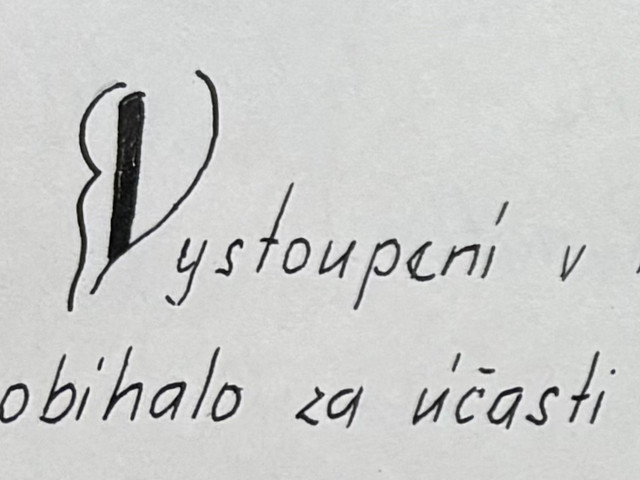 Vystoupení v
obíhalo za účasti